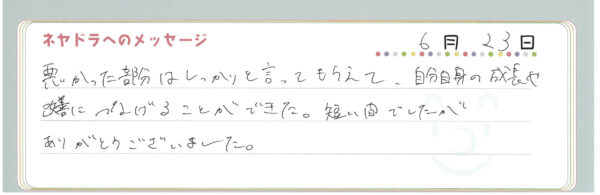 ネヤドラへのメッセージ 6月23日
悪かった部分はしっかりと言ってもらえて、自分自身の成長や
改善につなげることができた。短い間でしたが
ありがとうございました。